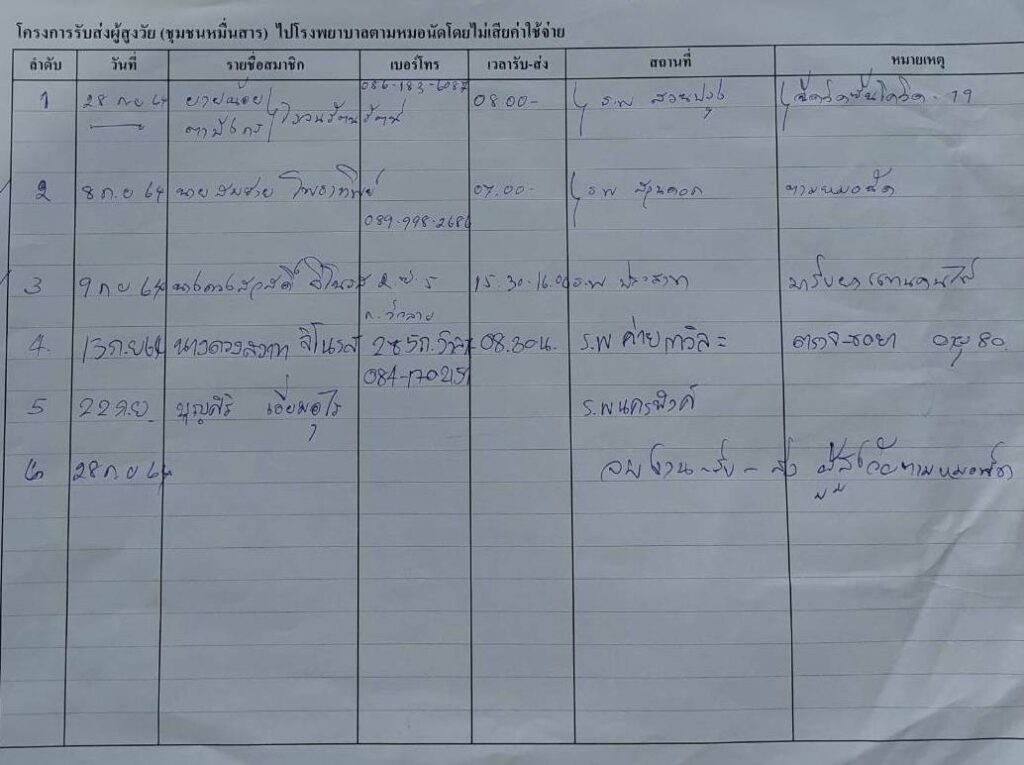 โครงการรับส่งผู้สูงวัย (ชุมชนหมื่นสาร) ไปโรงพยาบาลตามหมอนัดโดยไม่เสียค่าใช้จ่าย
ลำดับ วันที่ รายชื่อสมาชิก เบอร์โทร เวลารับ-ส่ง สถานที่ หมายเหตุ
086-183-6087
1 28 ก.ย 64 ยายน้อย 08.00- ร.พ สวนปรุง ฉีดวัคซีนโควิด-19
2 8 ก.ย 64 นายสมชาย 07.00- ร.พ สวนดอก ตามหมอนัด
089-998-2686
3 9 ก.ย 64 15.30-16.00 ร.พ ประสาท มารับยา
ถ.วัวลาย
4. 13 ก.ย 64 นางดวงสวาท จิโนรส 08.30 น. ร.พ ค่ายกาวิละ ตรวจ-ขอยา อายุ 80.
084-170215
5 22 ก.ย. บุญศิริ ร.พ นครพิงค์
6 28 ก.ย 64 จบงาน-รับ-ส่ง ผู้สูงวัยตามหมอ